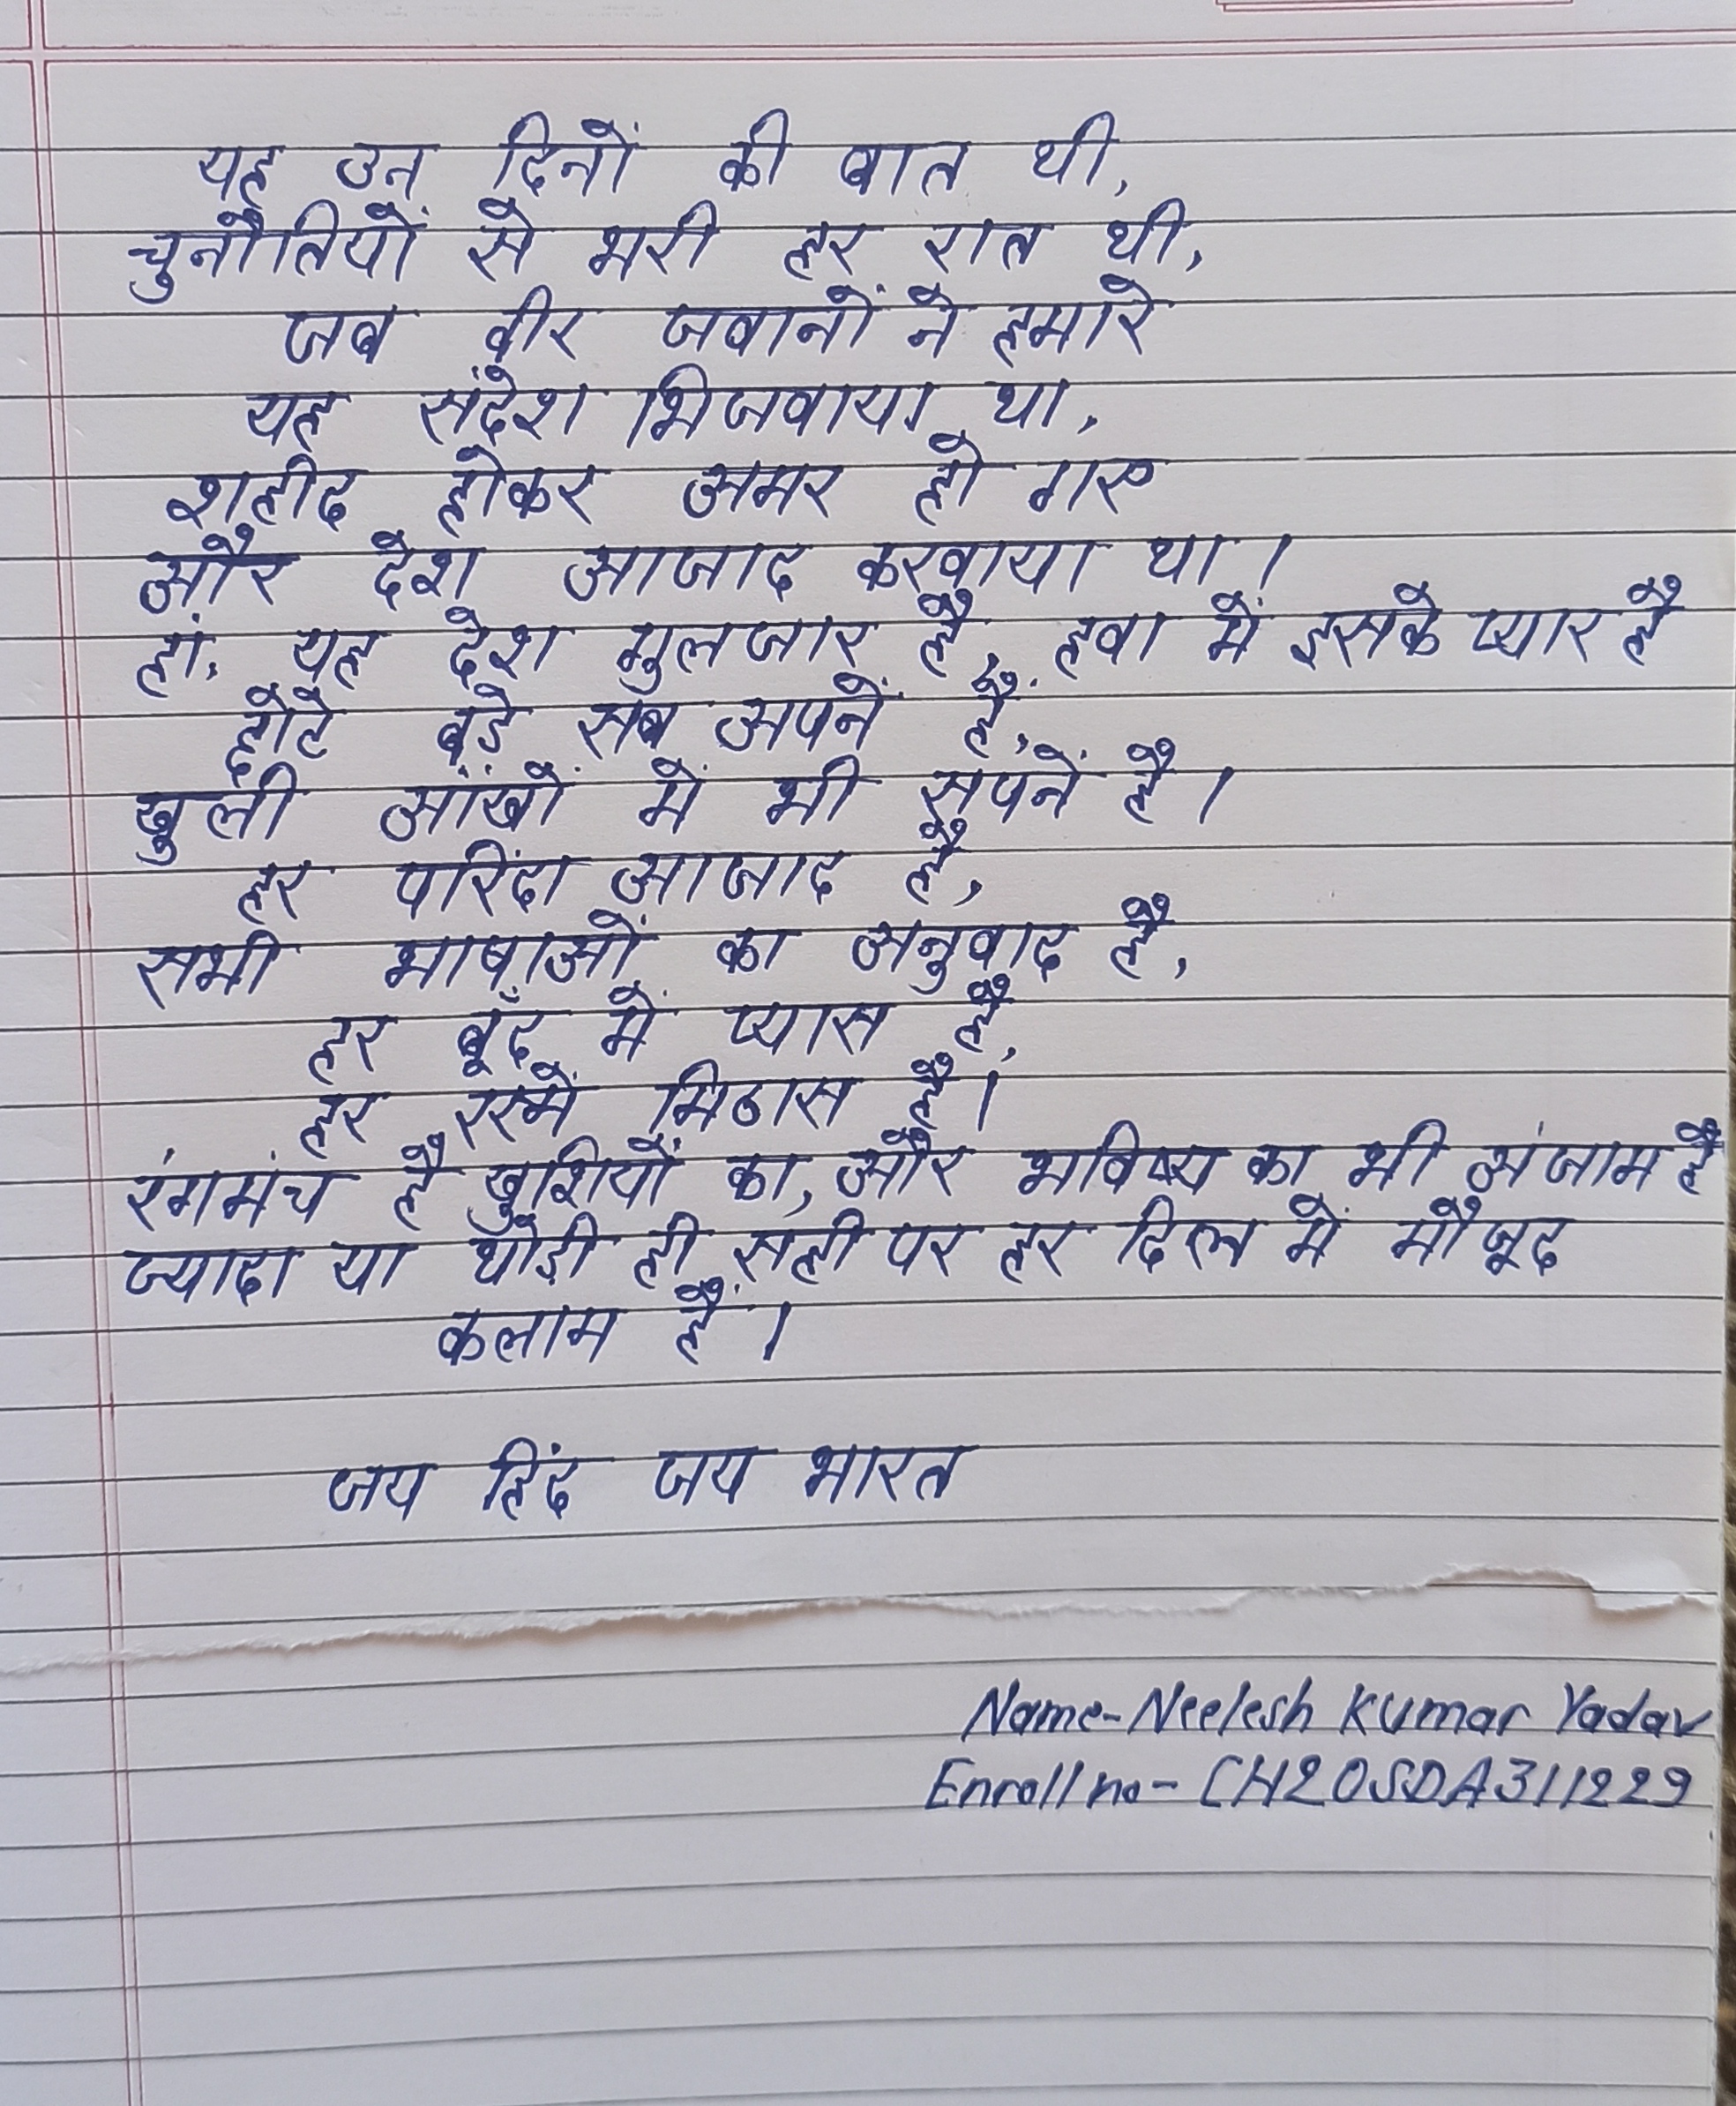 यह उन दिनों की बात थी,
चुनौतियों से भरी हर रात थी,
जब वीर जवानों ने हमारे
यह संदेश भिजवाया था,
शहीद होकर अमर हो गए
और देश आजाद करवाया था।
हां, यह देश गुलजार है, हवा में इसके प्यार है
छोटे बड़े सब अपने हैं,
खुली आंखों में भी सपनें है।
हर परिंदा आजाद है,
सभी भाषाओं का अनुवाद है,
हर बूँद में प्यास है,
हर रस्में मिठास है।
रंगमंच है खुशियों का, और भविष्य का भी अंजाम है
ज्यादा या थोड़ी ही सही पर हर दिल में मौजूद
कलाम हैं।
जय हिंद जय भारत
Name-Neelesh Kumar Yadav
Enroll no- CH20SDA311229